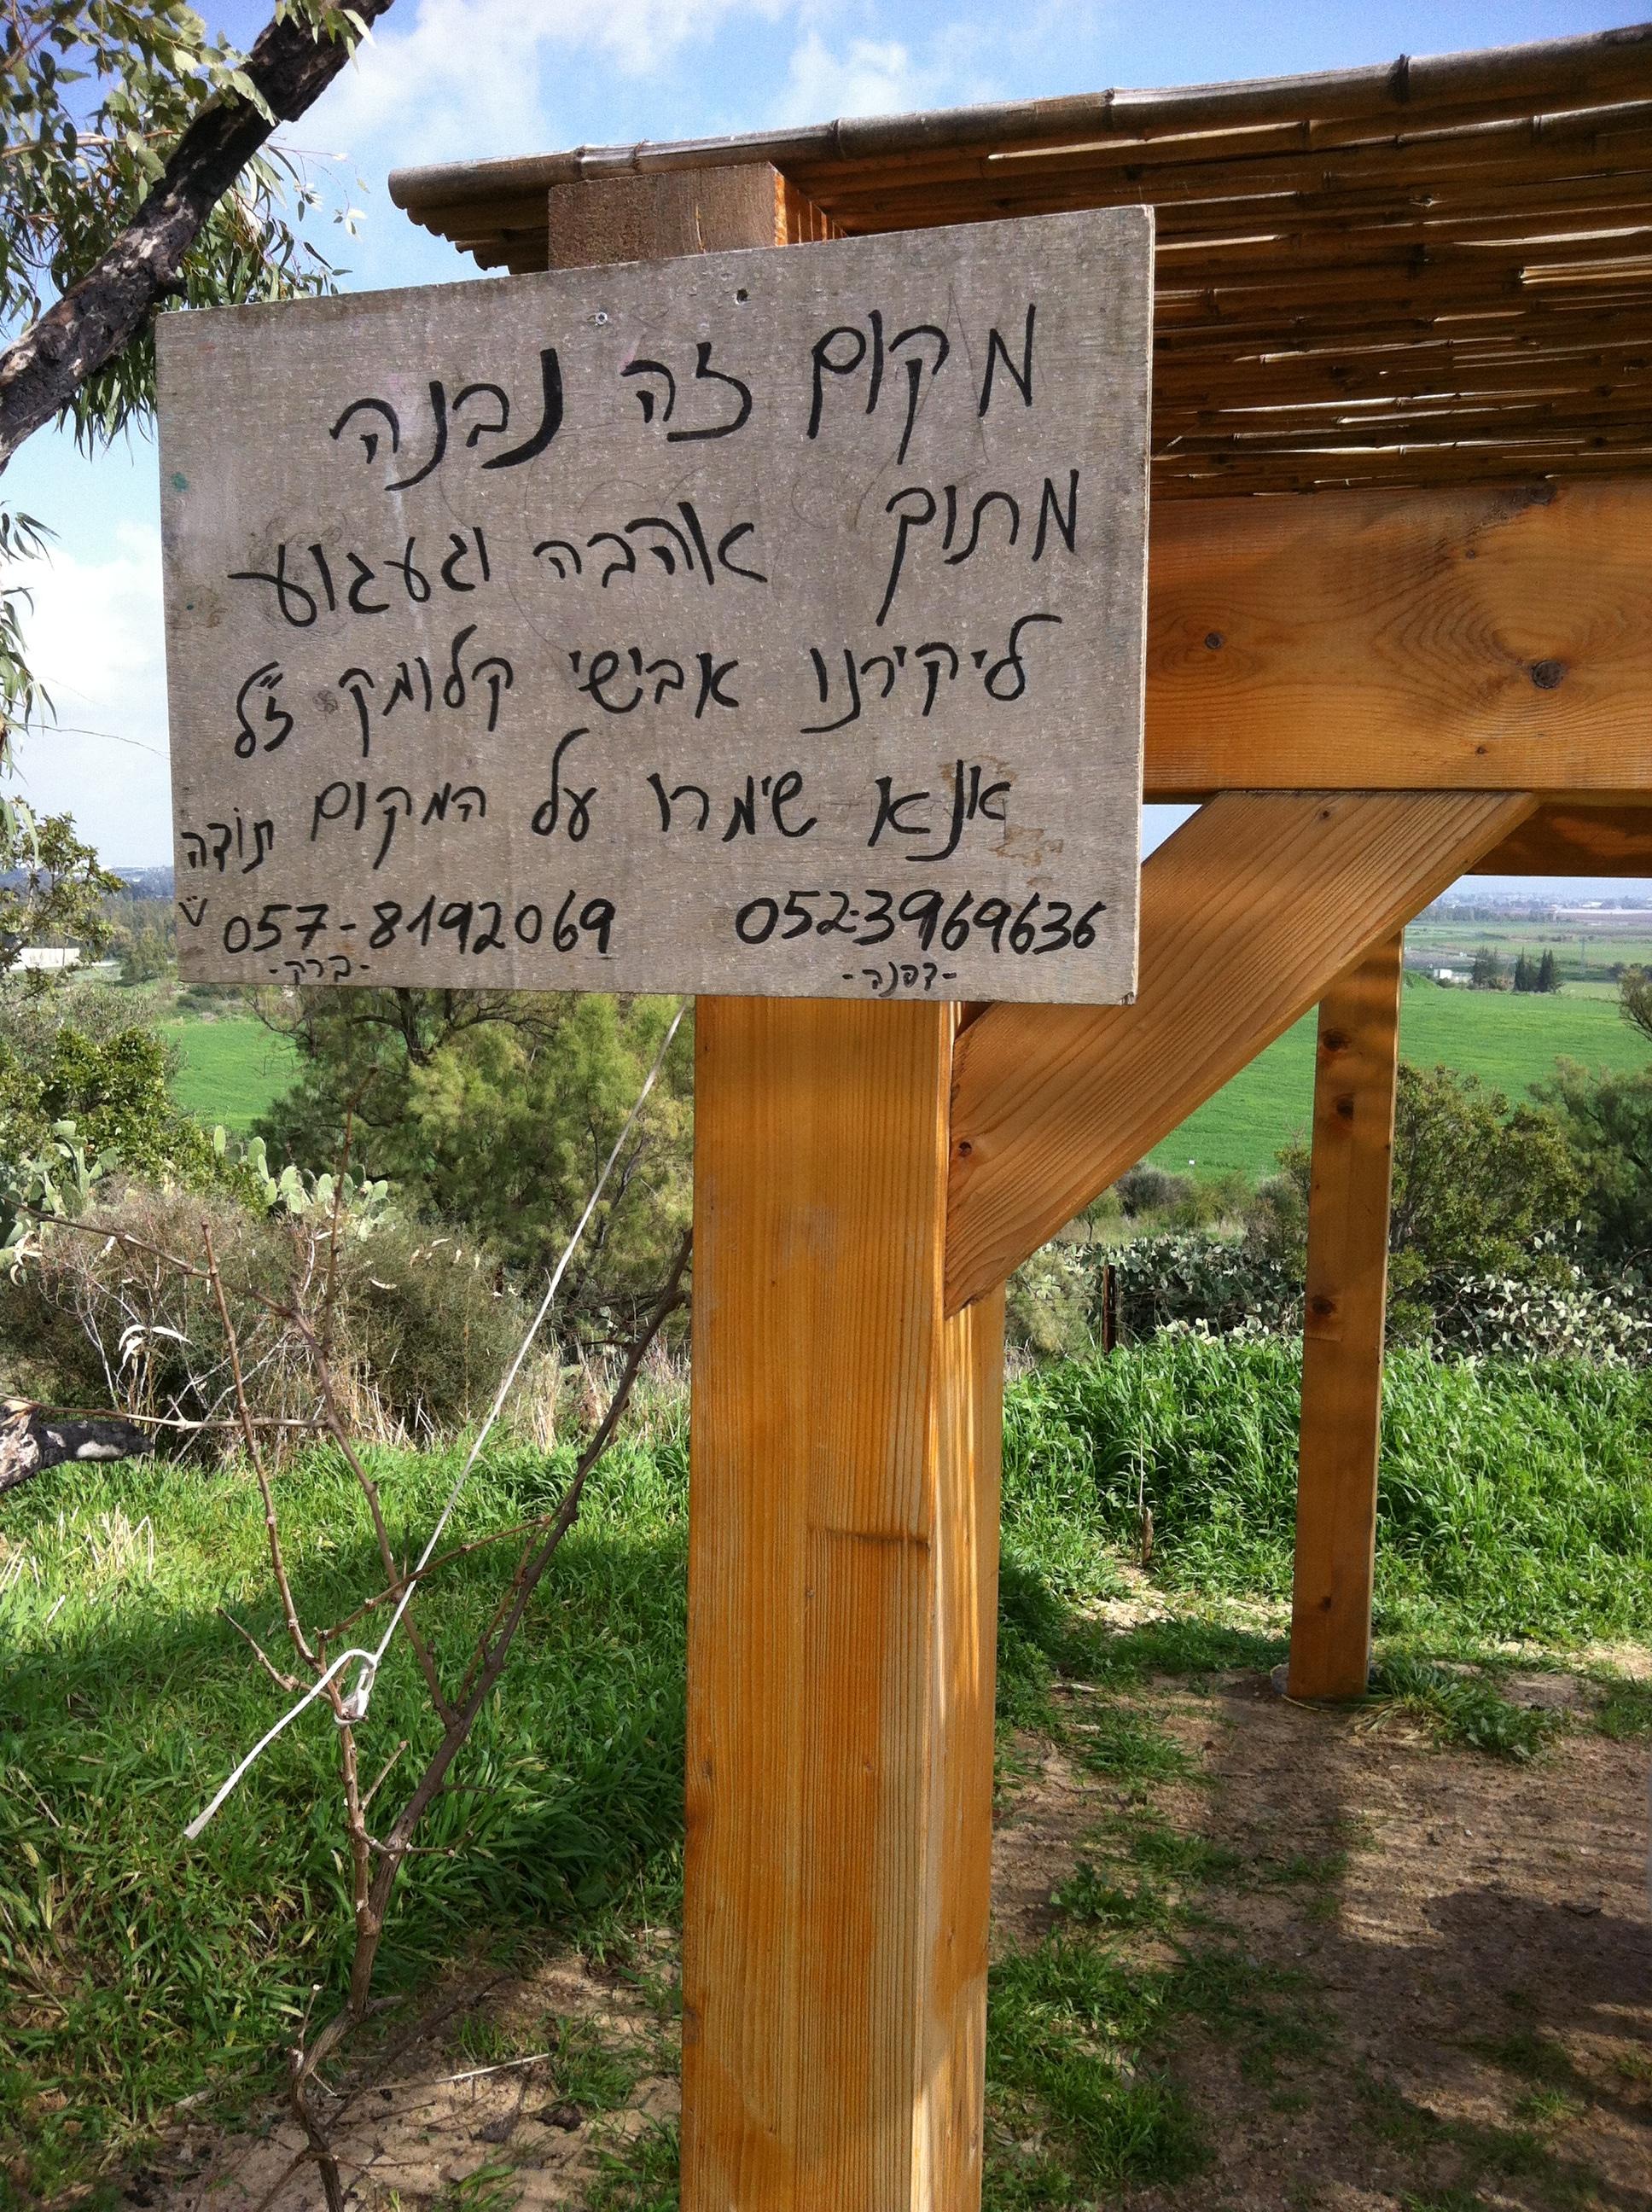 מקום זה נבנה
מתוך אהבה וגעגוע
ליקירנו אבישי קלומק ז״ל
אנא שימרו על המקום תודה
052-3969636 057-8192069
-דפנה- -ברק-